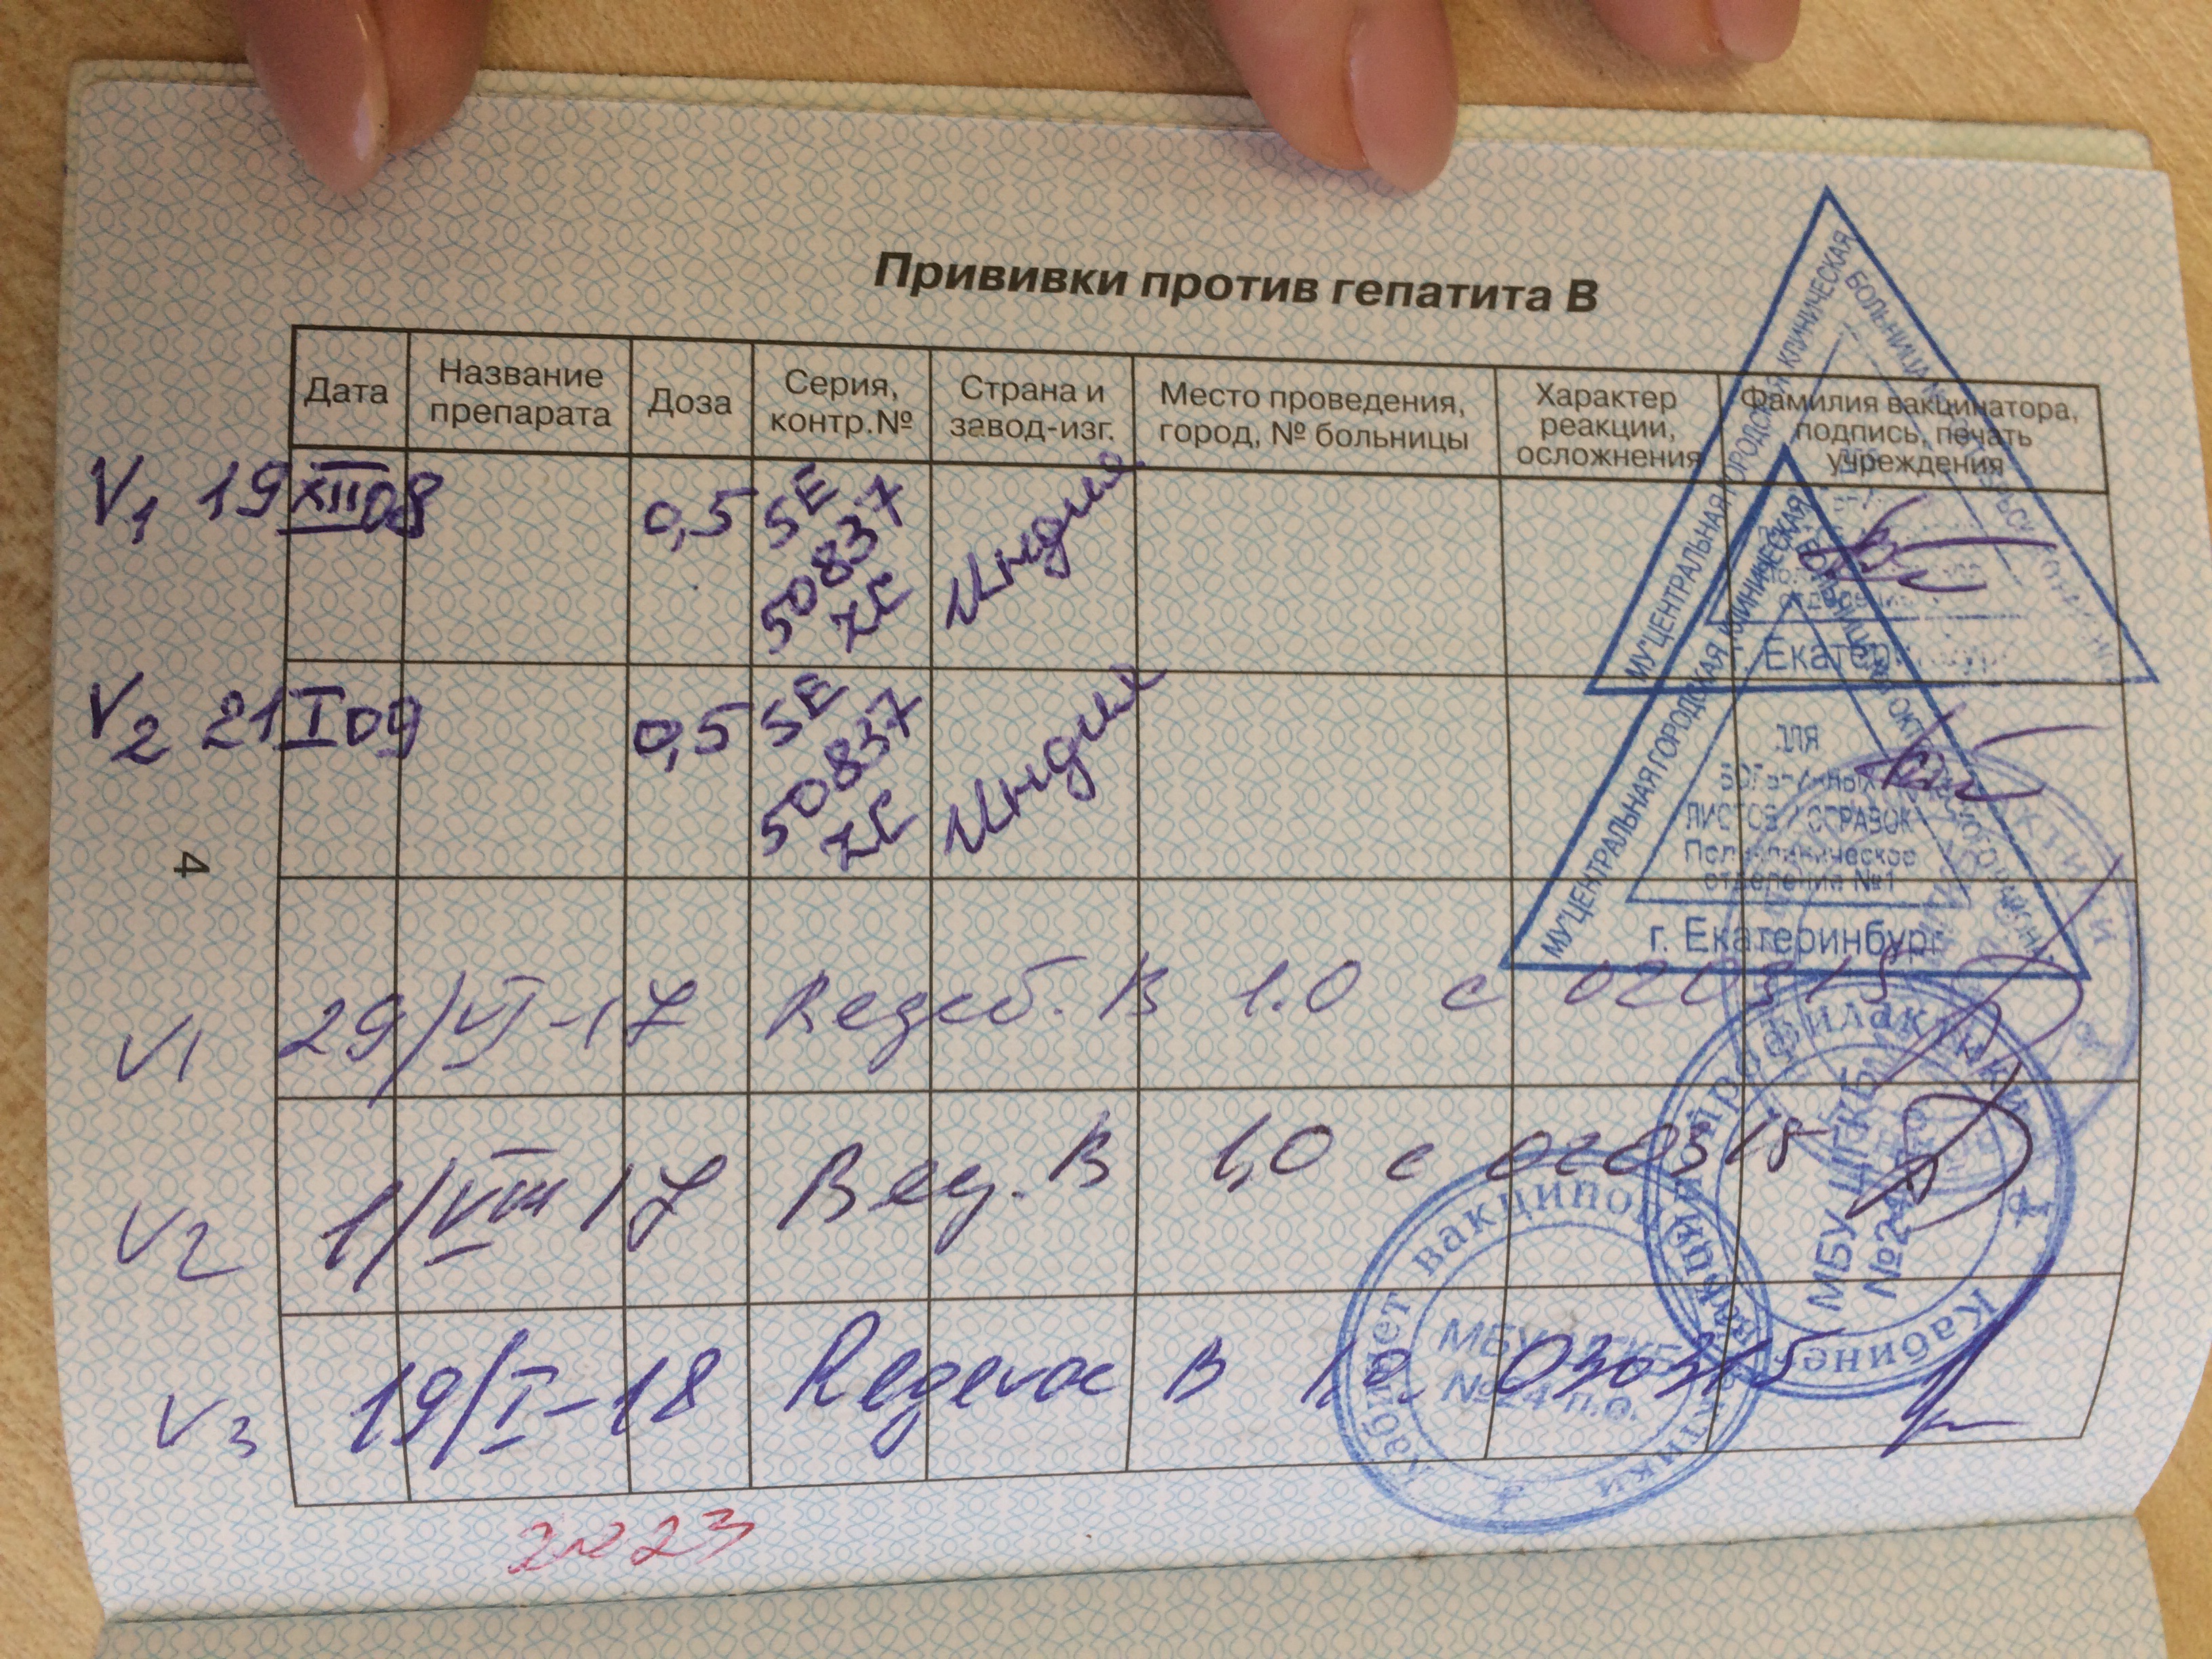 Прививки против гепатита В
Дата Название препарата Доза Серия, контр.№ Страна и завод-изг. Место проведения, город, № больницы Характер реакции, осложнения Фамилия вакцинатора, подпись, печать учреждения
V1 19 XII 08 0,5 SE 50837 Индия
V2 21 I 09 0,5 SE 50837 Индия
4
V1 29/VI-17 В 1.0 с 020315
V2 1/VIII 17 В 1,0 с 020315
V3 19/I-18 Regevac В 1,0 030315
2023
МУ"ЦЕНТРАЛЬНАЯ ГОРОДСКАЯ КЛИНИЧЕСКАЯ БОЛЬНИЦА
г. Екатеринбург
МУ"ЦЕНТРАЛЬНАЯ ГОРОДСКАЯ КЛИНИЧЕСКАЯ
ДЛЯ
БОЛЬНИЧНЫХ
ЛИСТОВ СПРАВОК
Поликлиническое
отделение №1
г. Екатеринбург
Кабинет вакцинопрофилактики
МБУ ЦГКБ
№24
Кабинет вакциноп
МБУ ЦГКБ
№24 п.о.